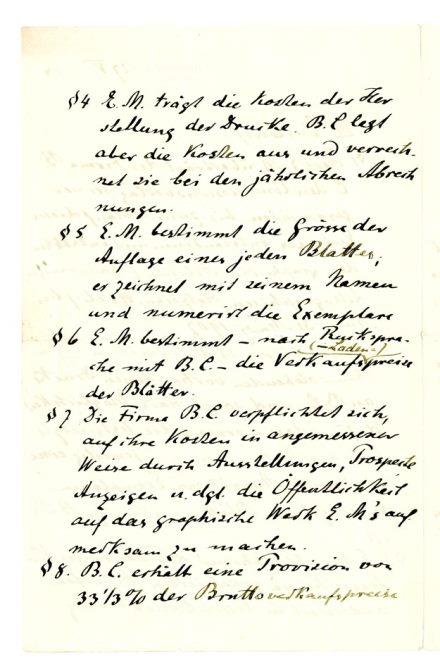 §4 E.M. trägt die Kosten der Her
stellung der Drucke. B.C legt
aber die Kosten aus und verrech-
net sie bei den jährlichen Abrech
nungen.
§5 E.M. bestimmt die Grösse der
Auflage eines jeden Blattes,
er zeichnet mit seinem Namen
und numeriert die Exemplare
§6 E.M. bestimmt – nach Rückspra-
(-Laden-)
che mit B.C. – die Verkaufspreise
der Blätter.
§7 Die Firma B.C. verpflichtet sich,
auf ihre Kosten in angemessener
Weise durch Ausstellungen, Prospecte
Anzeigen u. dgl. die Öffentlichkeit
auf das graphische Werk E.M's auf
merksam zu machen.
§8. B.C. erhält eine Provision von
33 1/3% der Bruttoverkaufspreise